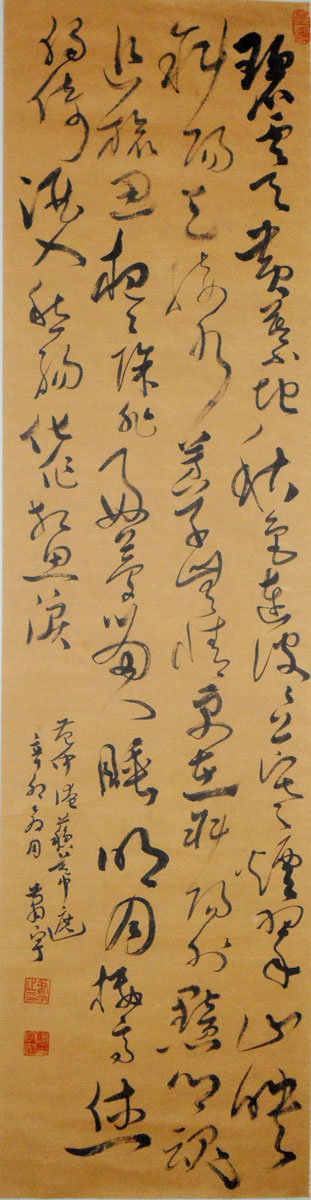 碧雲天黄葉地秋色連波〻上寒煙翠山映
斜陽天接水芳草無情更在斜陽外黯鄉魂
追旅思夜〻除非好夢留人睡明月樓高休
獨倚酒入愁腸化作相思淚
范仲淹蘇幕遮
辛卯月蕭宇